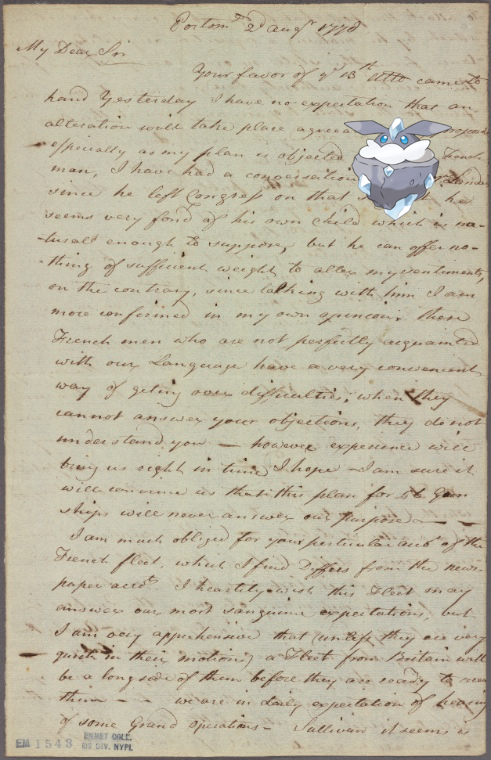 Portsmº 2d augt 1778
My Dear Sir
Your favor of ye 13th Ulto came to
hand Yesterday I have no expectation that an
alteration will take place agreea
especially as my plan is objected French
man, I have had a conversation
since he left Congress on that s he
seems very fond of his own child which is na-
turall enough to suppose, but he can offer no-
thing of sufficient weight to alter my sentiments,
on the contrary, since talking with him I am
more confirmed in my own opinion; these
French men who are not perfectly acquainted
with our Language have a very convenient
way of geting over difficulties, when they
cannot answer your objections, they do not
understand you — however experience will
bring us right in time I hope I am sure it
will convince us that this plan for 56 Gun
ships will never answer our purpose — —
I am much obliged for your perticular acct of the
French fleet, which I find Differs from the news-
paper acct I heartily wish this Fleet may
answer our most sanguine expectations, but
I am very apprehensive that (unless they are very
quick in their motions) a Fleet from Britain will
be a long side of them before they are ready to
them — — we are in daily expectation of hearing
of some Grand operations — Sullivan it seems is
EM 1543
EMMET COLL.
MS DIV. NYPL